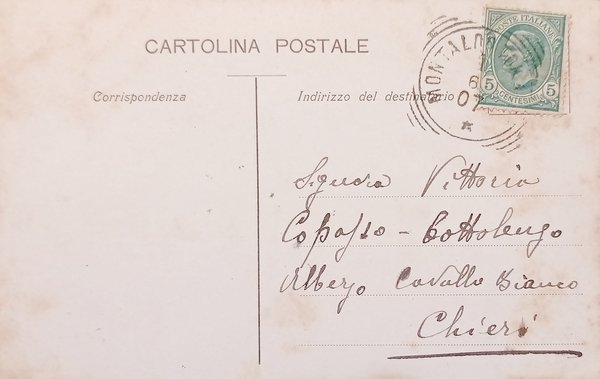 CARTOLINA POSTALE
POSTE ITALIANE
5 CENTESIMI 5
6
07
Corrispondenza
Indirizzo del destinatario
Signora Vittoria
Copasso - Cottolengo
Albergo Cavallo Bianco
Chieri